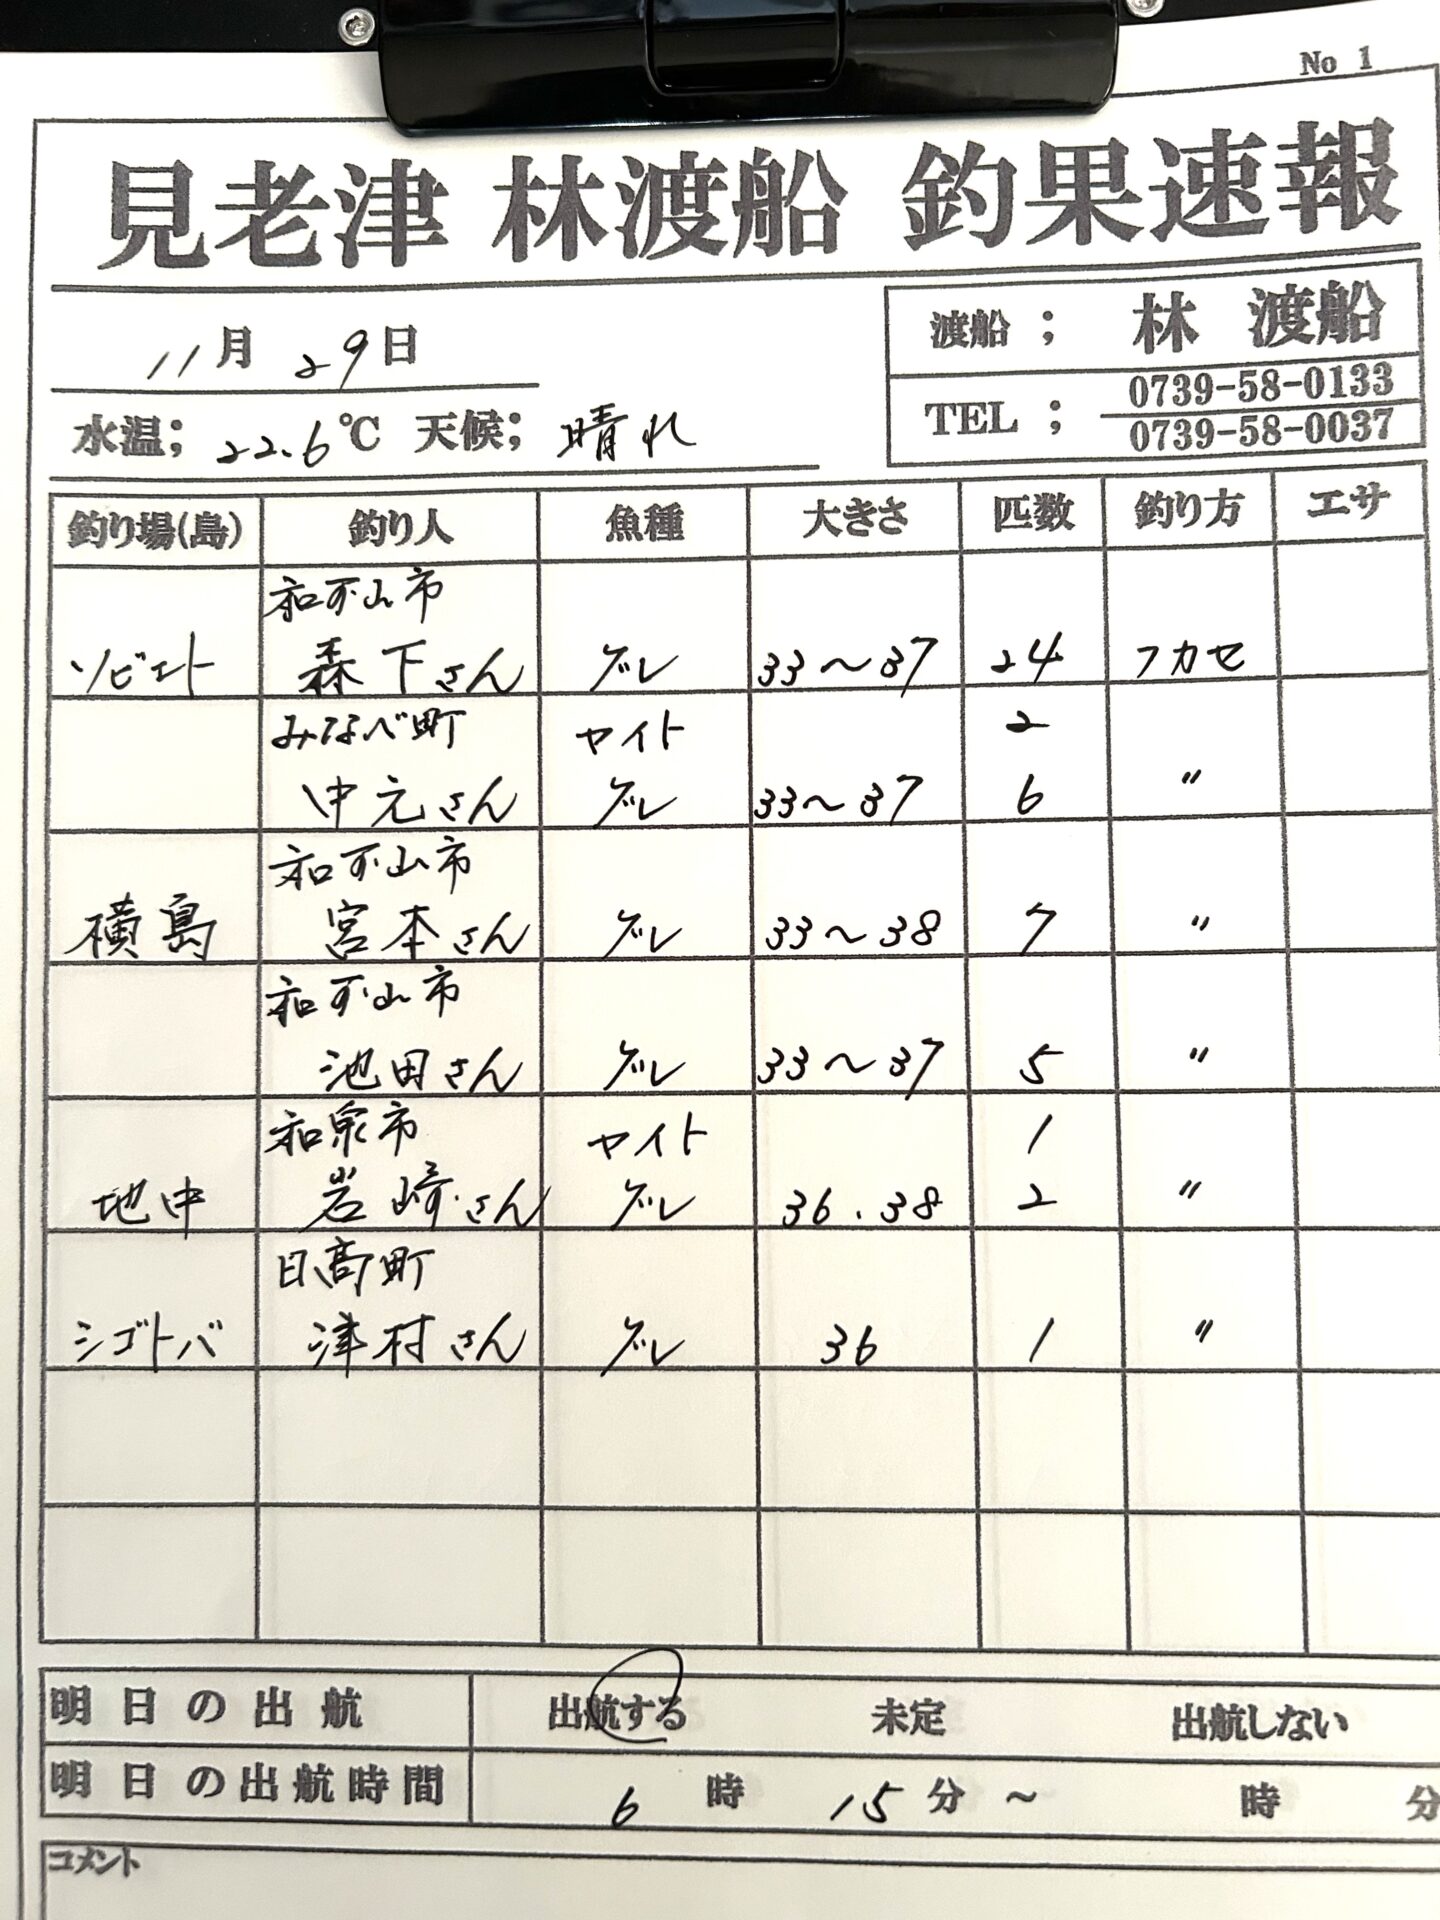 No 1
見老津 林渡船 釣果速報
11月 29日
渡船； 林 渡船
TEL； 0739-58-0133
0739-58-0037
水温；22.6℃ 天候；晴れ
釣り場(島) 釣り人 魚種 大きさ 匹数 釣り方 エサ
和歌山市
ソビエト 森下さん グレ 33～37 24 フカセ
みなべ町 ヤイト 2
中元さん グレ 33～37 6 〃
和歌山市
横島 宮本さん グレ 33～38 7 〃
和歌山市
池田さん グレ 33～37 5 〃
和泉市 ヤイト 1
地中 岩崎さん グレ 36.38 2 〃
日高町
シゴトバ 津村さん グレ 36 1 〃
明日の出航 出航する 未定 出航しない
明日の出航時間 6時 15分～ 時 分
コメント